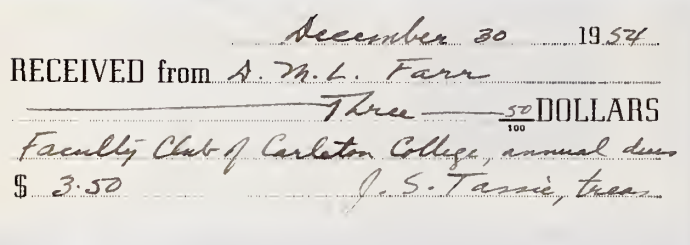 December 30 1954
RECEIVED from D. M. L. Farr
Three 50/100 DOLLARS
Faculty Club of Carleton College, annual dues
$ 3.50 J. S. Tassie, treas